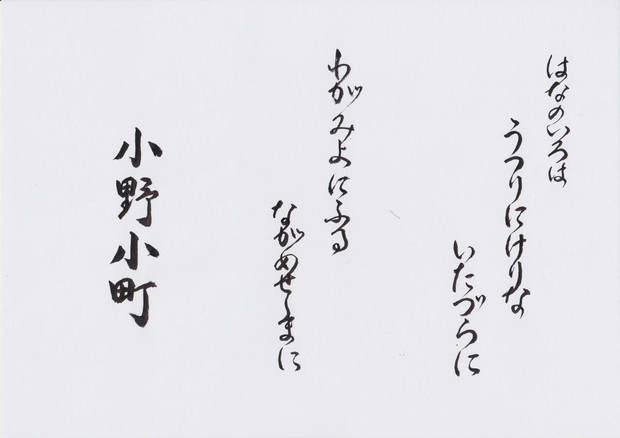 はなのいろは
うつりにけりな
いたづらに
わがみよにふる
ながめせしまに
小野小町